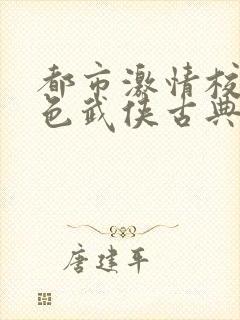 都市激情校
色武侠古典
唐建平